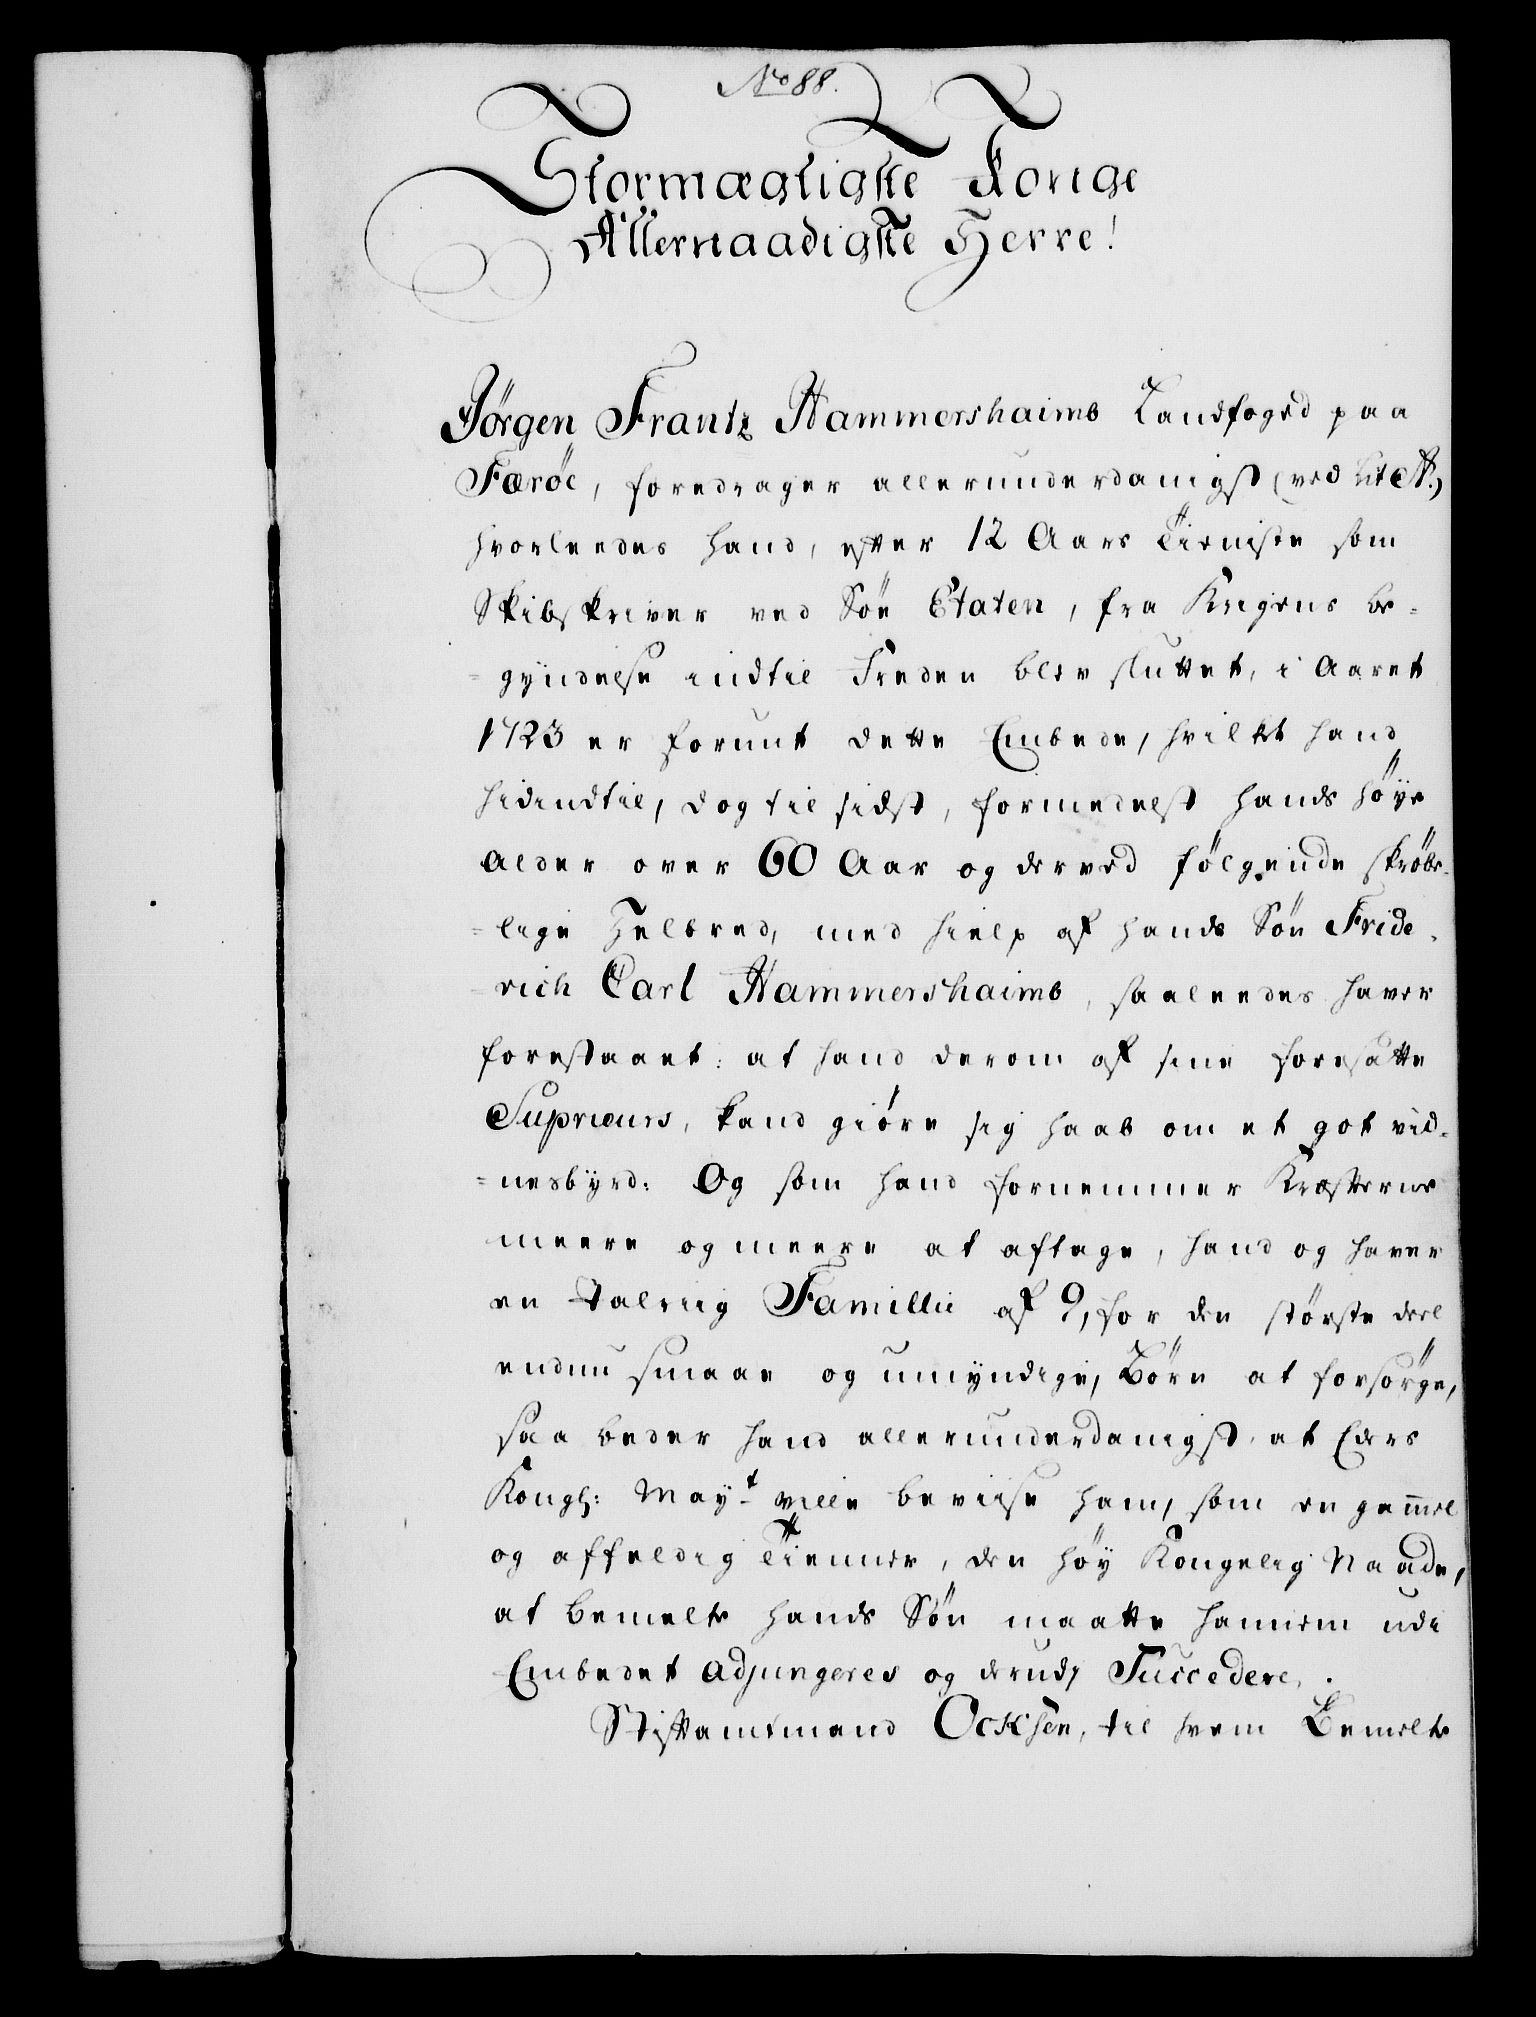 No 88.
Stormægtigste Konge
Allernaadigste Herre!
Jörgen Frantz Hammershaimb Landfoged paa
Færöe, foredrager allerunderdanigst (ved Lit A.)
hvorleedes hand, efter 12 Aars Tieniste som
Skibskriver ved Söe Etaten, fra Krigens be=
=gyndelse indtil Freden blev sluttet, i Aaret
1723 er forunt dette Embede, hvilket hand
hidindtil, dog til sidst, formedelst hands höye
alder over 60 Aar og derved fölgende skröbe=
=lige Helbred, med hielp af hands Sön Fride=
=rich Carl Hammershaimb, saaleedes haver
forestaaet: at hand derom af sine foresatte
Suprieurs, kand giöre sig haab om et got vid=
=nesbyrd: Og som hand fornemmer Kræfterne
meere og meere at aftage, hand og haver
en talriig Famillie af 9, for den störste deel
endnu smaae og umyndige, Börn at forsörge,
saa beder hand allerunderdanigst, at Eders
Kongl: Mayt ville beviise ham, som en gam̅el
og affeldig Tienner, den höy Kongelig Naade,
at bemelte hands Sön maatte hannem udi
Embedet adjungeres og derudj Succedere.
Stiftamtmand Ocksen, til hvem Bemelte